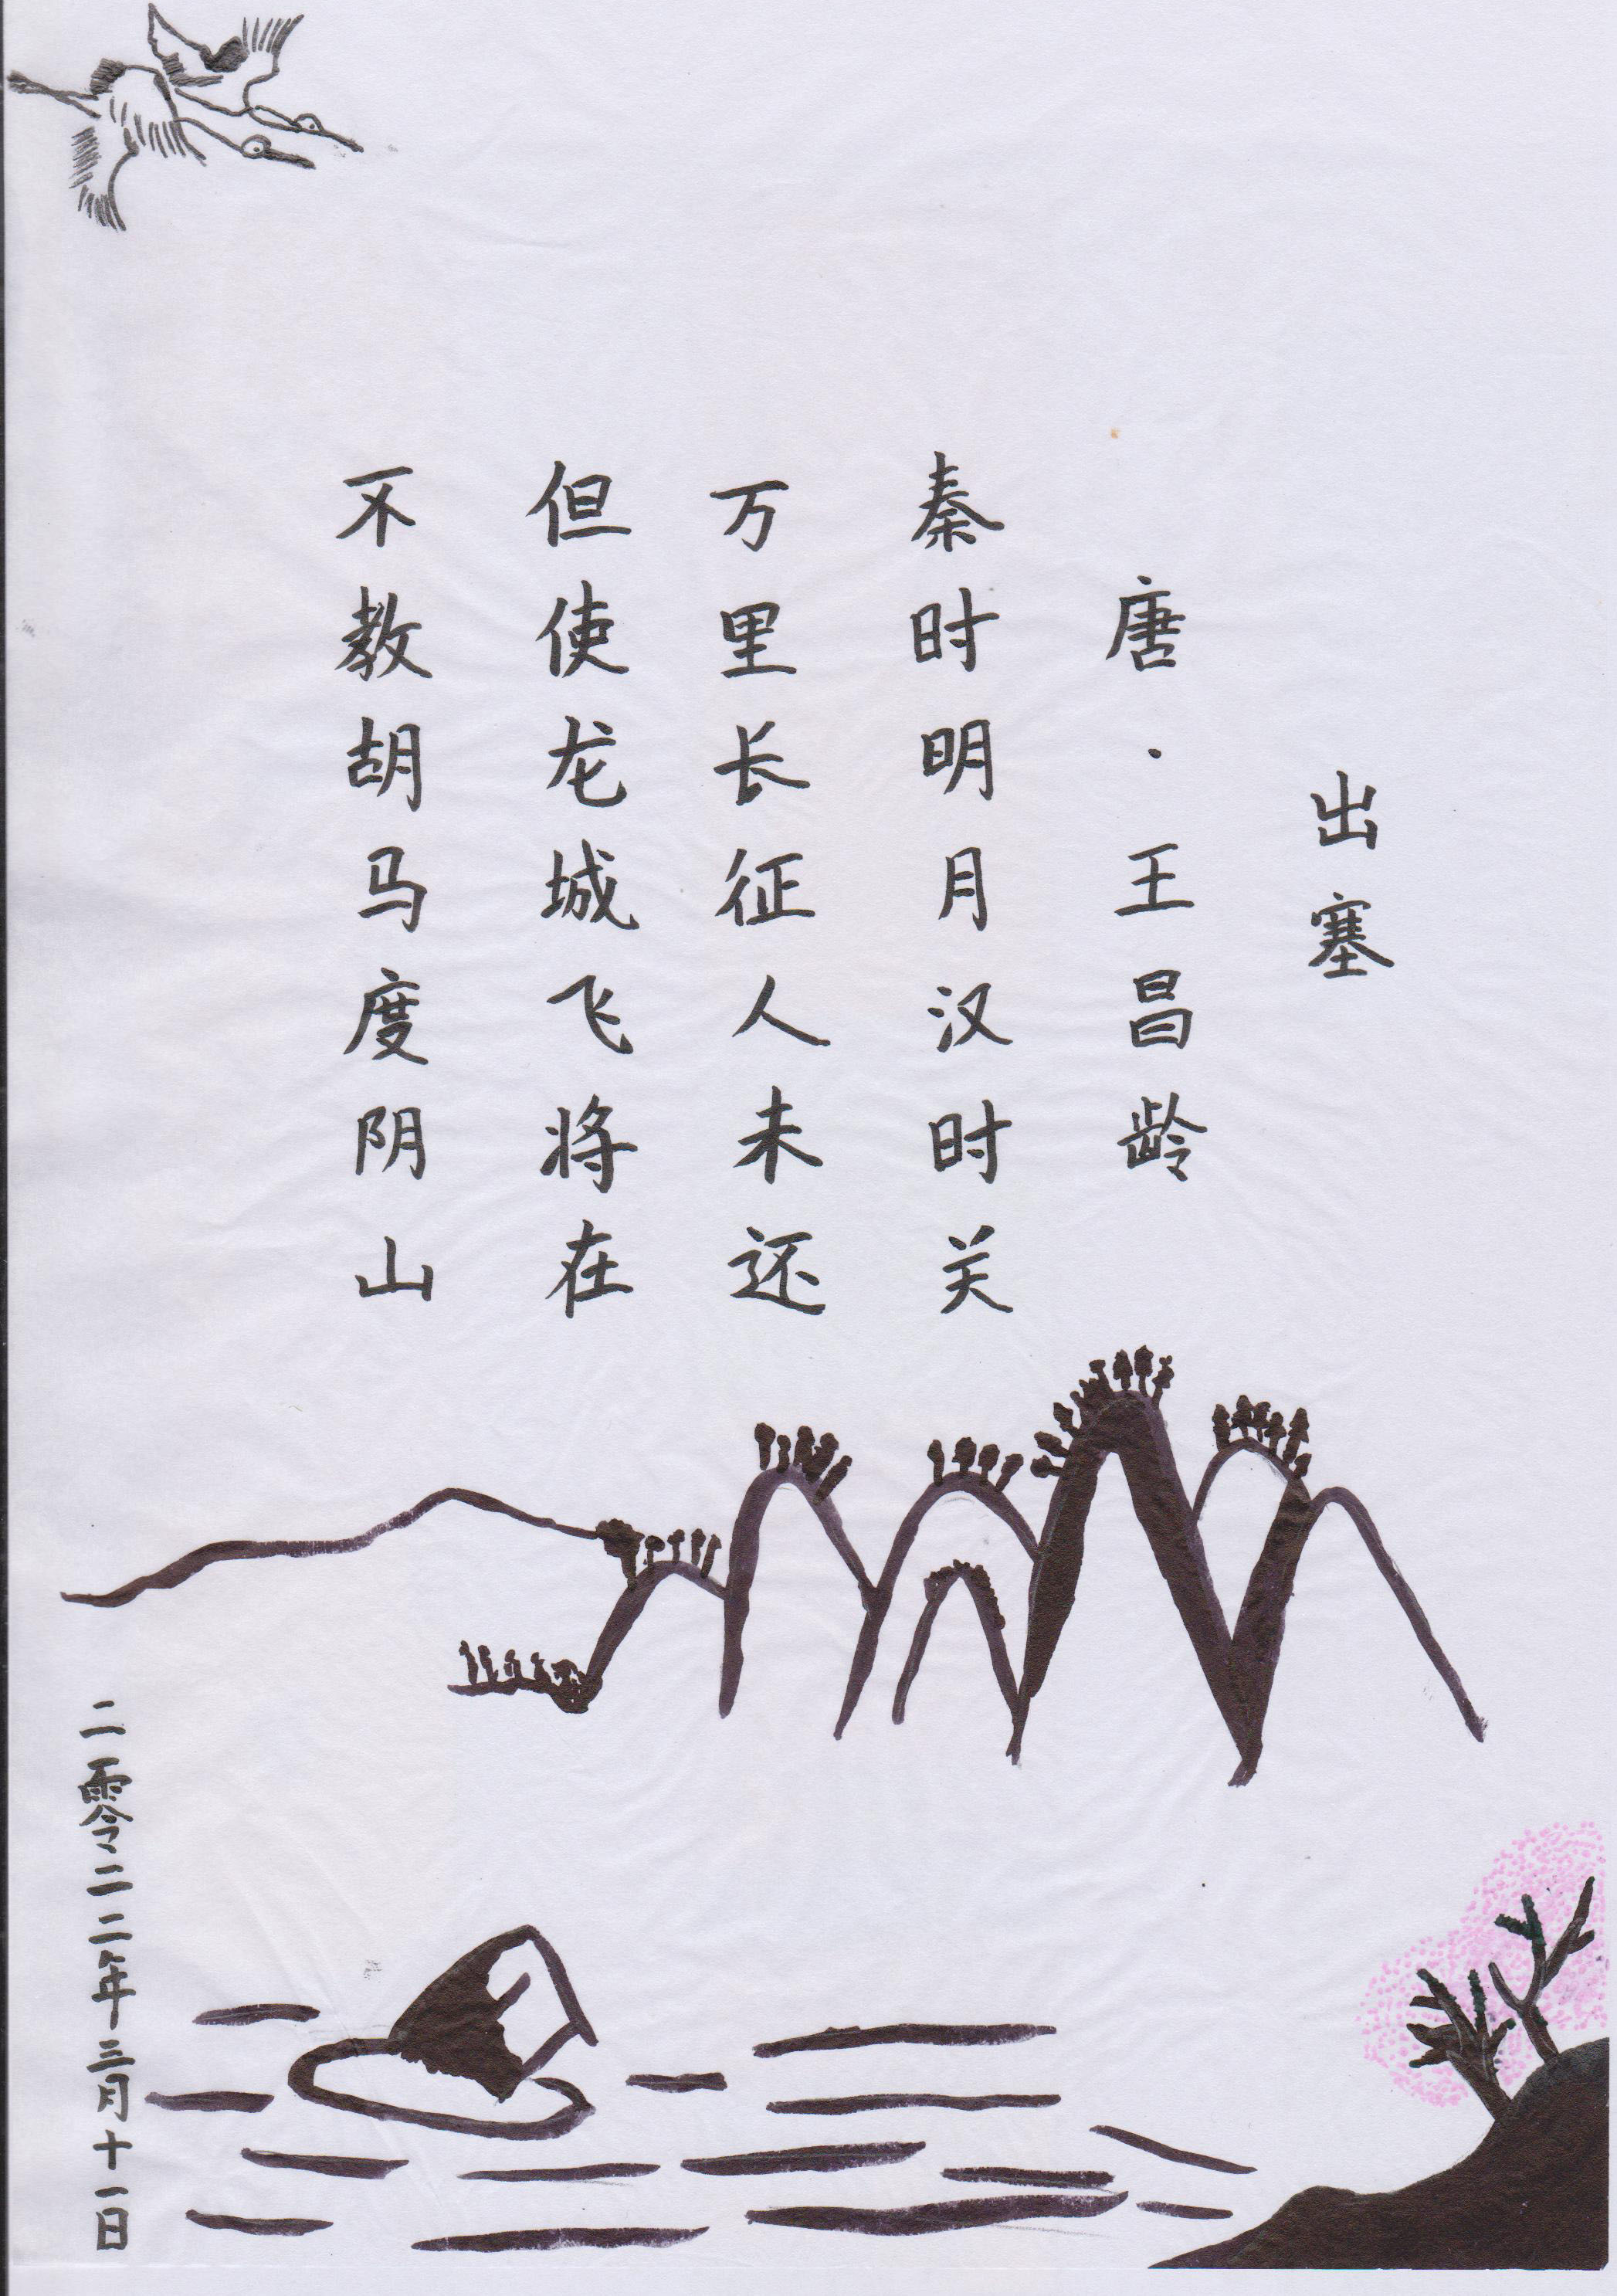 出塞
唐·王昌龄
秦时明月汉时关
万里长征人未还
但使龙城飞将在
不教胡马度阴山
二零二二年三月十一日